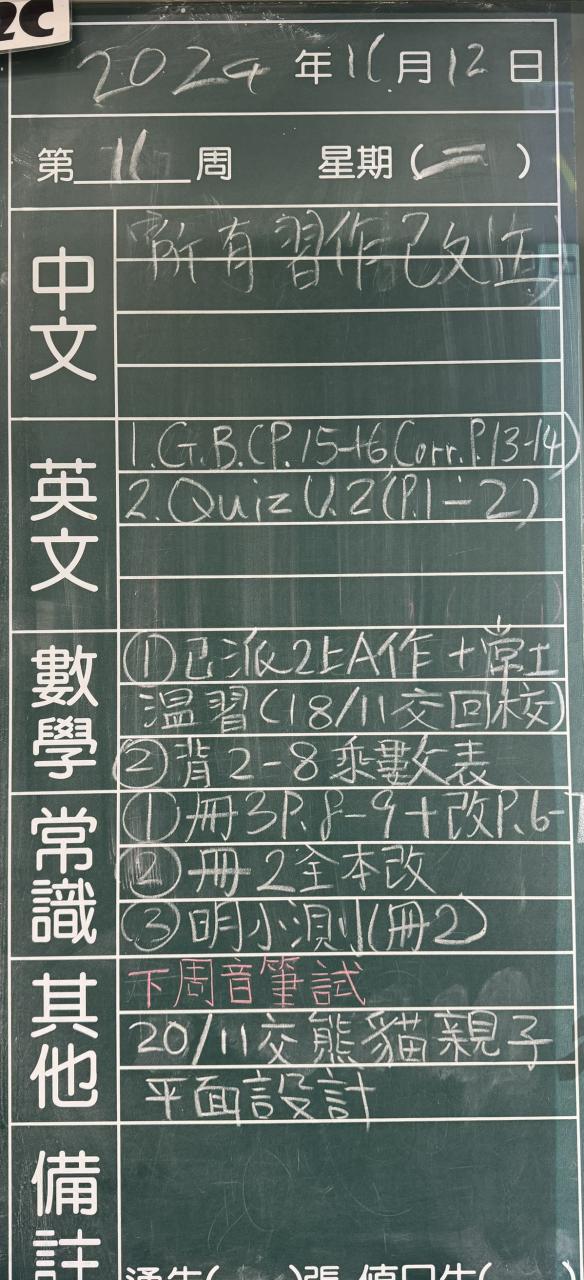 2C
2024年11月12日
第11周 星期(二)
中文
所有習作已改
英文
1.G.B.(P.15-16,Corr.P.13-14)
2.Quiz U.2(P.1-2)
數學
①已派2上A作+堂工
温習(18/11交回校)
②背2-8乘數表
常識
①冊3P.8-9+改P.6-7
②冊2全本改
③明小測(冊2)
其他
下周音筆試
20/11交熊貓親子
平面設計
備註